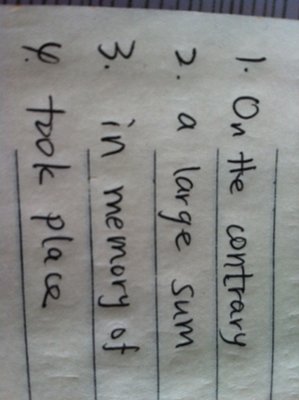 1. On the contrary
2. a large sum
3. in memory of
4. took place